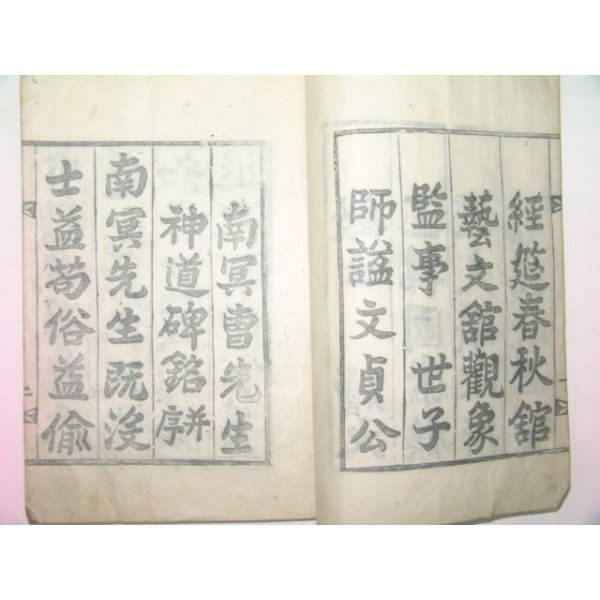 經筵春秋舘
藝文舘觀象
監事　世子
師諡文貞公
南冥曺先生
神道碑銘并序
南冥先生旣没
士益苟俗益偷